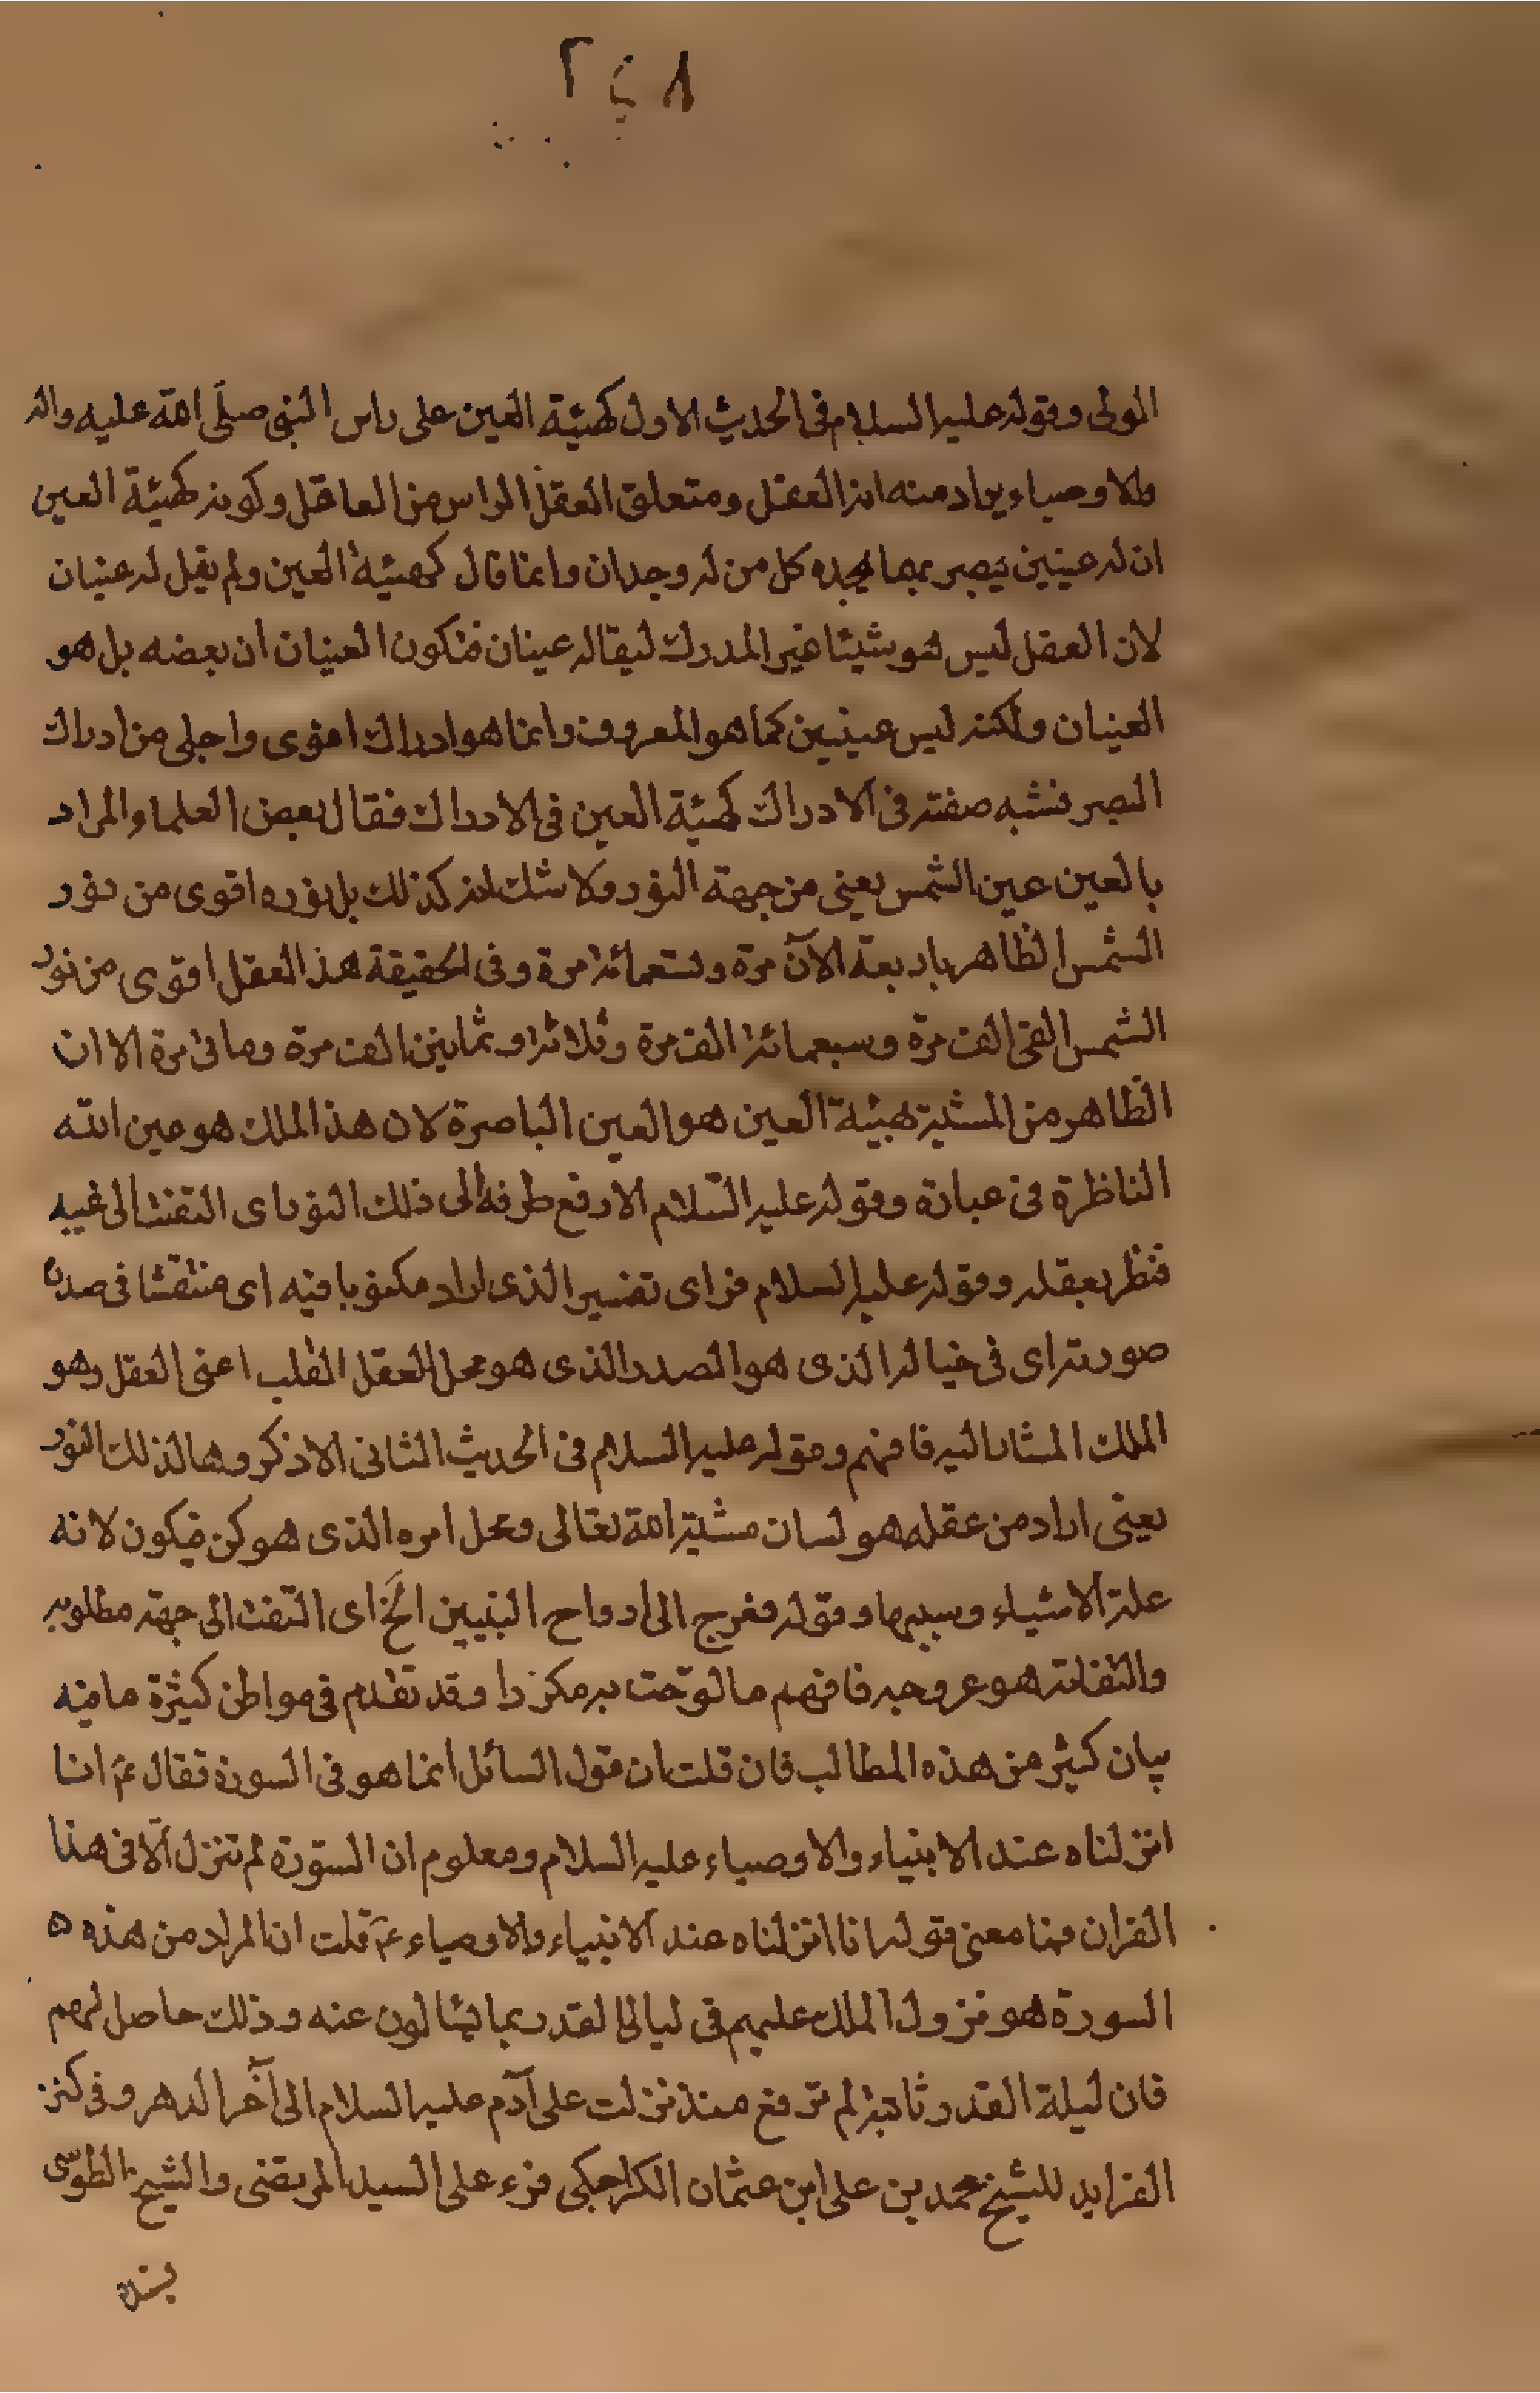 ٢٤٨
الولى وقوله عليه السلام فى الحديث الاول كهيئة العين على راس النبى صلّى الله عليه واله
والاوصياء يراد منه انه العقل ومتعلق العقل الراس من العاقل وكونه كهيئة العين
ان له عينين يبصر بهما يجده كل من له وجدان وانما قال كهيئة العين ولم يقل له عينان
لان العقل ليس هو شيئا غير المدرك ليقاله عينان فتكون العينان ان بعضه بل هو
العينان ولكنه ليس عينين كما هو المعروف وانما هو ادراك اقوى واجلى من ادراك
البصر فشبه صفته فى الادراك كهيئة العين فى الادراك فقال بعض العلماء والمراد
بالعين عين الشمس يعنى من جهة النور ولا شك انه كذلك بل نوره اقوى من نور
الشمس الظاهر باربعة الآف مرة وتسعمائة مرة وفى الحقيقة هذا العقل اقوى من نور
الشمس الفى الف مرة وسبعمائة الف مرة وثلاثة وثمانين الف مرة ومائى مرة الا ان
الظاهر من المشبه بهيئة العين هو العين الباصرة لان هذا الملك هو عين الله
الناظرة فى عباده وقوله عليه السّلام الا رفع طرفه الى ذلك النور اى التفت الى غيبه
فنظر بعقله وقوله عليه السلام فراى تفسير الذى اراد مكتوبا فيه اى منتقشا فى صدره
صورته اى فى خياله الذى هو الصدر الذى هو محل العقل القلب اعنى العقل وهو
الملك المشار اليه فافهم وقوله عليه السلام فى الحديث الثانى الا ذكروها لذلك النور
يعنى اراد من عقله هو لسان مشية الله تعالى ومحل امره الذى هو كن فيكون لانه
علة الاشياء وسببها وقوله فعرج الى ارواح النبيين الخ اى التفت الى جهة مطلوبه
والتفاته هو عروجه فافهم ما لوّحت به مكررا وقد تقدم فى مواطن كثيرة ما فيه
بيان كثير من هذه المطالب فان قلت ان قول السائل انما هو فى السورة فقال عم انا
انزلناه عند الانبياء والاوصياء عليه السلام ومعلوم ان السّورة لم تنزل الّا فى هذا
القران فما معنى قوله انا انزلناه عند الانبياء والاوصياء عم قلت ان المراد من هذه ه
السورة هو نزول الملك عليهم فى ليالى القدر بما يسالون عنه وذلك حاصل لهم
فان ليلة القدر ثابتة لم ترفع منذ نزلت على آدم عليه السلام الى آخر الدهر وفى كنز
الفرايد للشيخ محمد بن على ابن عثمان الكراجكى قرء على السيد المرتضى والشيخ الطوسى